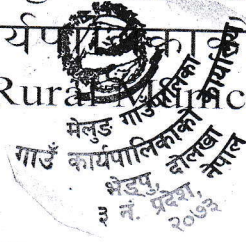 र्यपालिकाको
Rural Munic
मेलुङ गाउँपालिका
गाउँ कार्यपालिकाको कार्यालय
भेडपु, दोलखा
३ नं. प्रदेश, नेपाल
२०७३